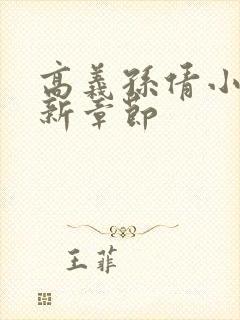 高義孫倩小
新章節
王菲